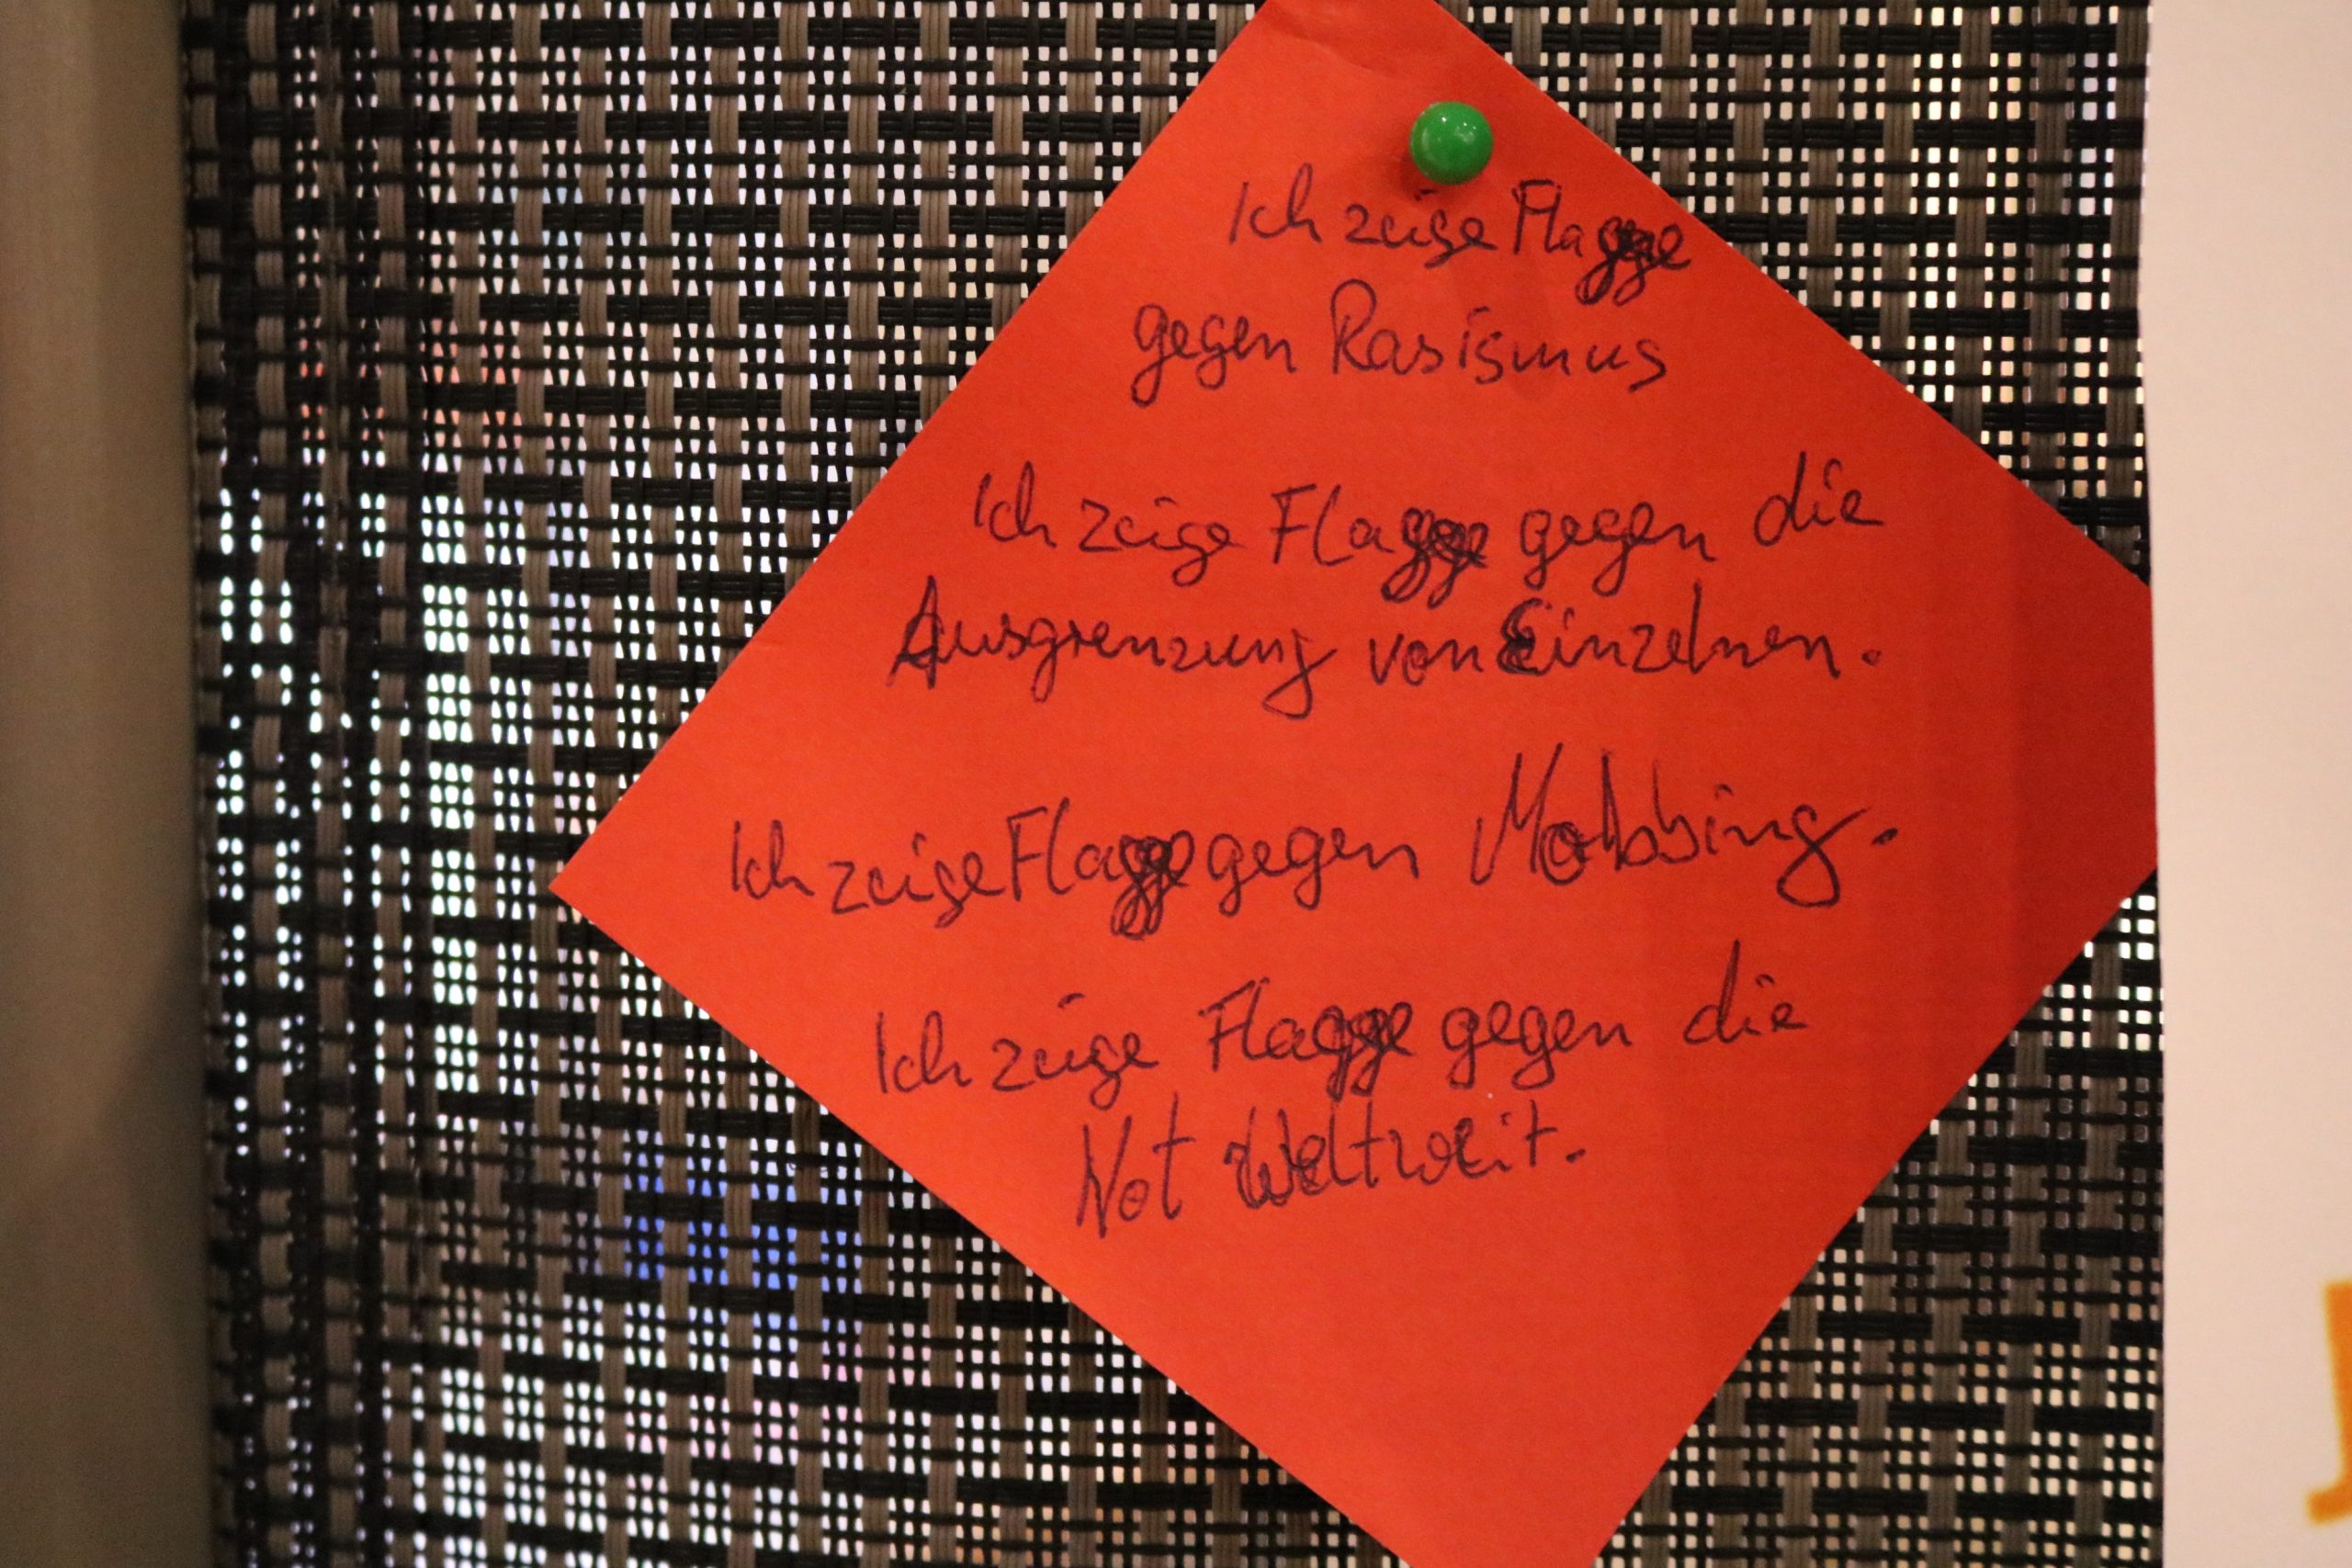 Ich zeige Flagge
gegen Rasismus
Ich zeige Flagge gegen die
Ausgrenzung von Einzelnen.
Ich zeige Flagge gegen Mobbing.
Ich zeige Flagge gegen die
Not Weltweit.